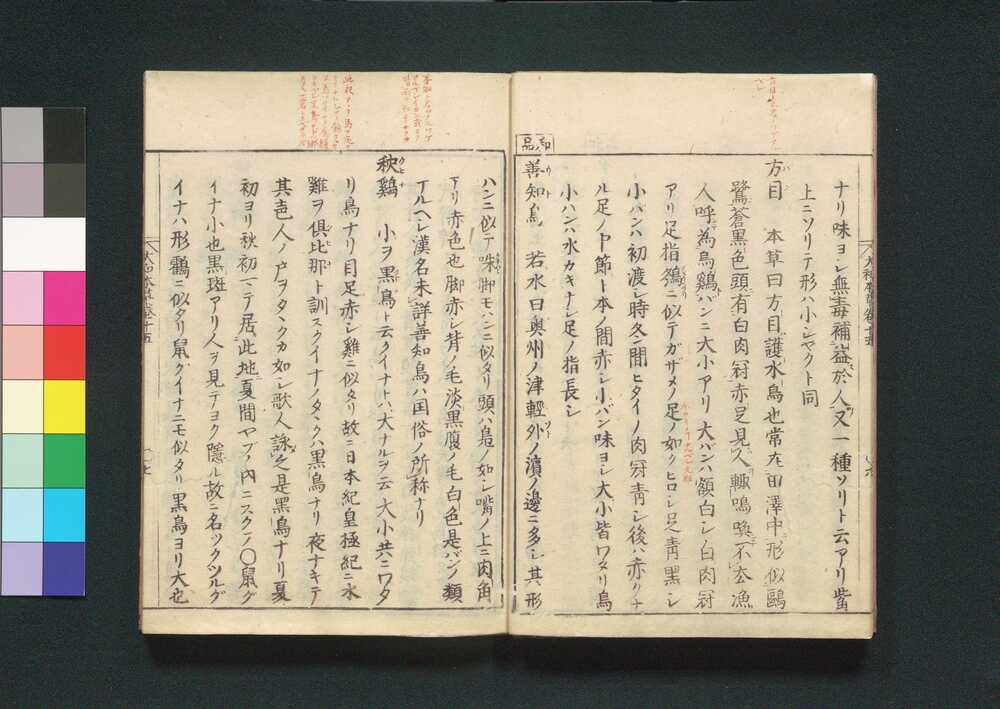 ナリ味ヨシ無毒補益於人又一種ソリト云アリ觜
上ニソリテ形ハ小シヤクト同
方目 本草曰方目護水鳥也常在田澤中形似鷗
鷺蒼黒色頭有白肉冠赤足見人輙鳴喚不去漁
人呼為烏鷄バンニ大小アリ大バンハ額白シ白肉冠
アリ足指鷭ニ似テガザメノ足ノ如クヒロシ足靑黒シ
小バンハ初渡シ時冬ノ間ヒタイノ肉冠靑シ後ハ赤クナ
ル足ノ中節ト本ノ間赤シ小バン味ヨシ大小皆ワタリ鳥
小ハンハ水カキナシ足ノ指長シ
和品
善知鳥 若水曰奥州ノ津輕外ノ濱ノ邊ニ多シ其形
ハンニ似テ味脚モハンニ似タリ頭ハ鳧ノ如シ嘴ノ上ニ肉角
アリ赤色也脚赤シ背ノ毛淡黒腹ノ毛白色是バンノ類
ナルヘシ漢名未詳善知鳥ハ国俗ノ所称ナリ
秧鷄 小ヲ黒鳥ト云クイナトハ大ナルヲ云大小共ニワタ
リ鳥ナリ目足赤シ雞ニ似タリ故ニ日本紀皇極紀ニ水
雞ヲ倶比那ト訓スクイナノタヽクハ黒鳥ナリ夜ナキテ
其声人ノ戸ヲタヽクカ如シ歌人詠之是黒鳥ナリ夏
初ヨリ秋初マテ居此地夏間ヤブノ内ニスクフ○鼠グ
イナ小也黒斑アリ人ヲ見テヨク隠ル故ニ名ツクツルグ
イナハ形鶴ニ似タリ鼠グイナニモ似タリ黒鳥ヨリ大也